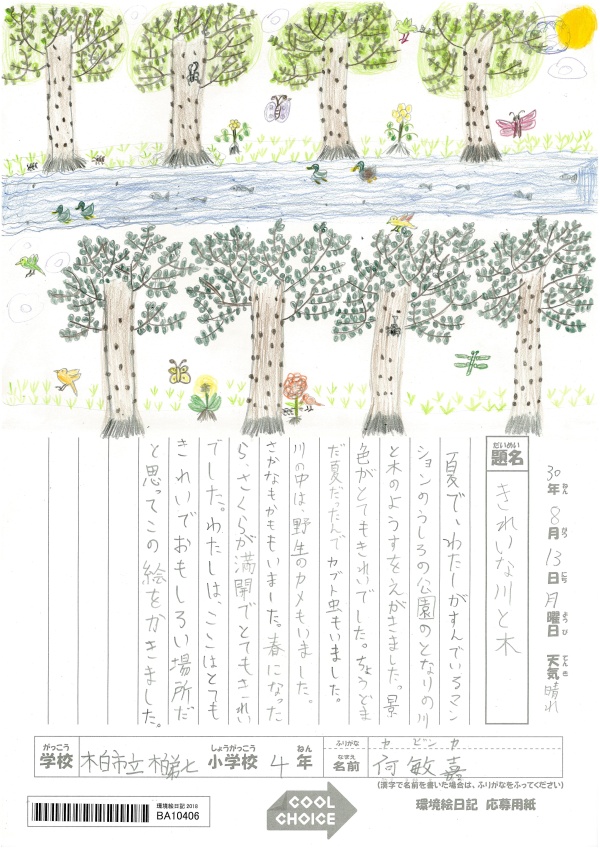 30年ねん 8月がつ 13日にち 月曜日ようび 天気てんき 晴れ
だいめい
題名
きれいな川と木
夏で、わたしがすんでいるマン
ションのうしろの公園のとなりの川
と木のようすをえがきました。景
色がとてもきれいでした。ちょうどま
だ夏だったんでカブト虫もいました。
川の中は、野生のカメもいました。
さかなもかももいました。春になった
ら、さくらが満開でとてもきれい
でした。わたしは、ここはとても
きれいでおもしろい場所だ
と思ってこの絵をかきました。
がっこう
学校
柏市立 柏第七
しょうがっこう
小学校
4
ねん
年
ふりがな
カ ビン カ
なまえ
名前
何 敏 嘉
(漢字で名前を書いた場合は、ふりがなをふってください)
環境絵日記2018
BA10406
COOL
CHOICE
環境絵日記 応募用紙